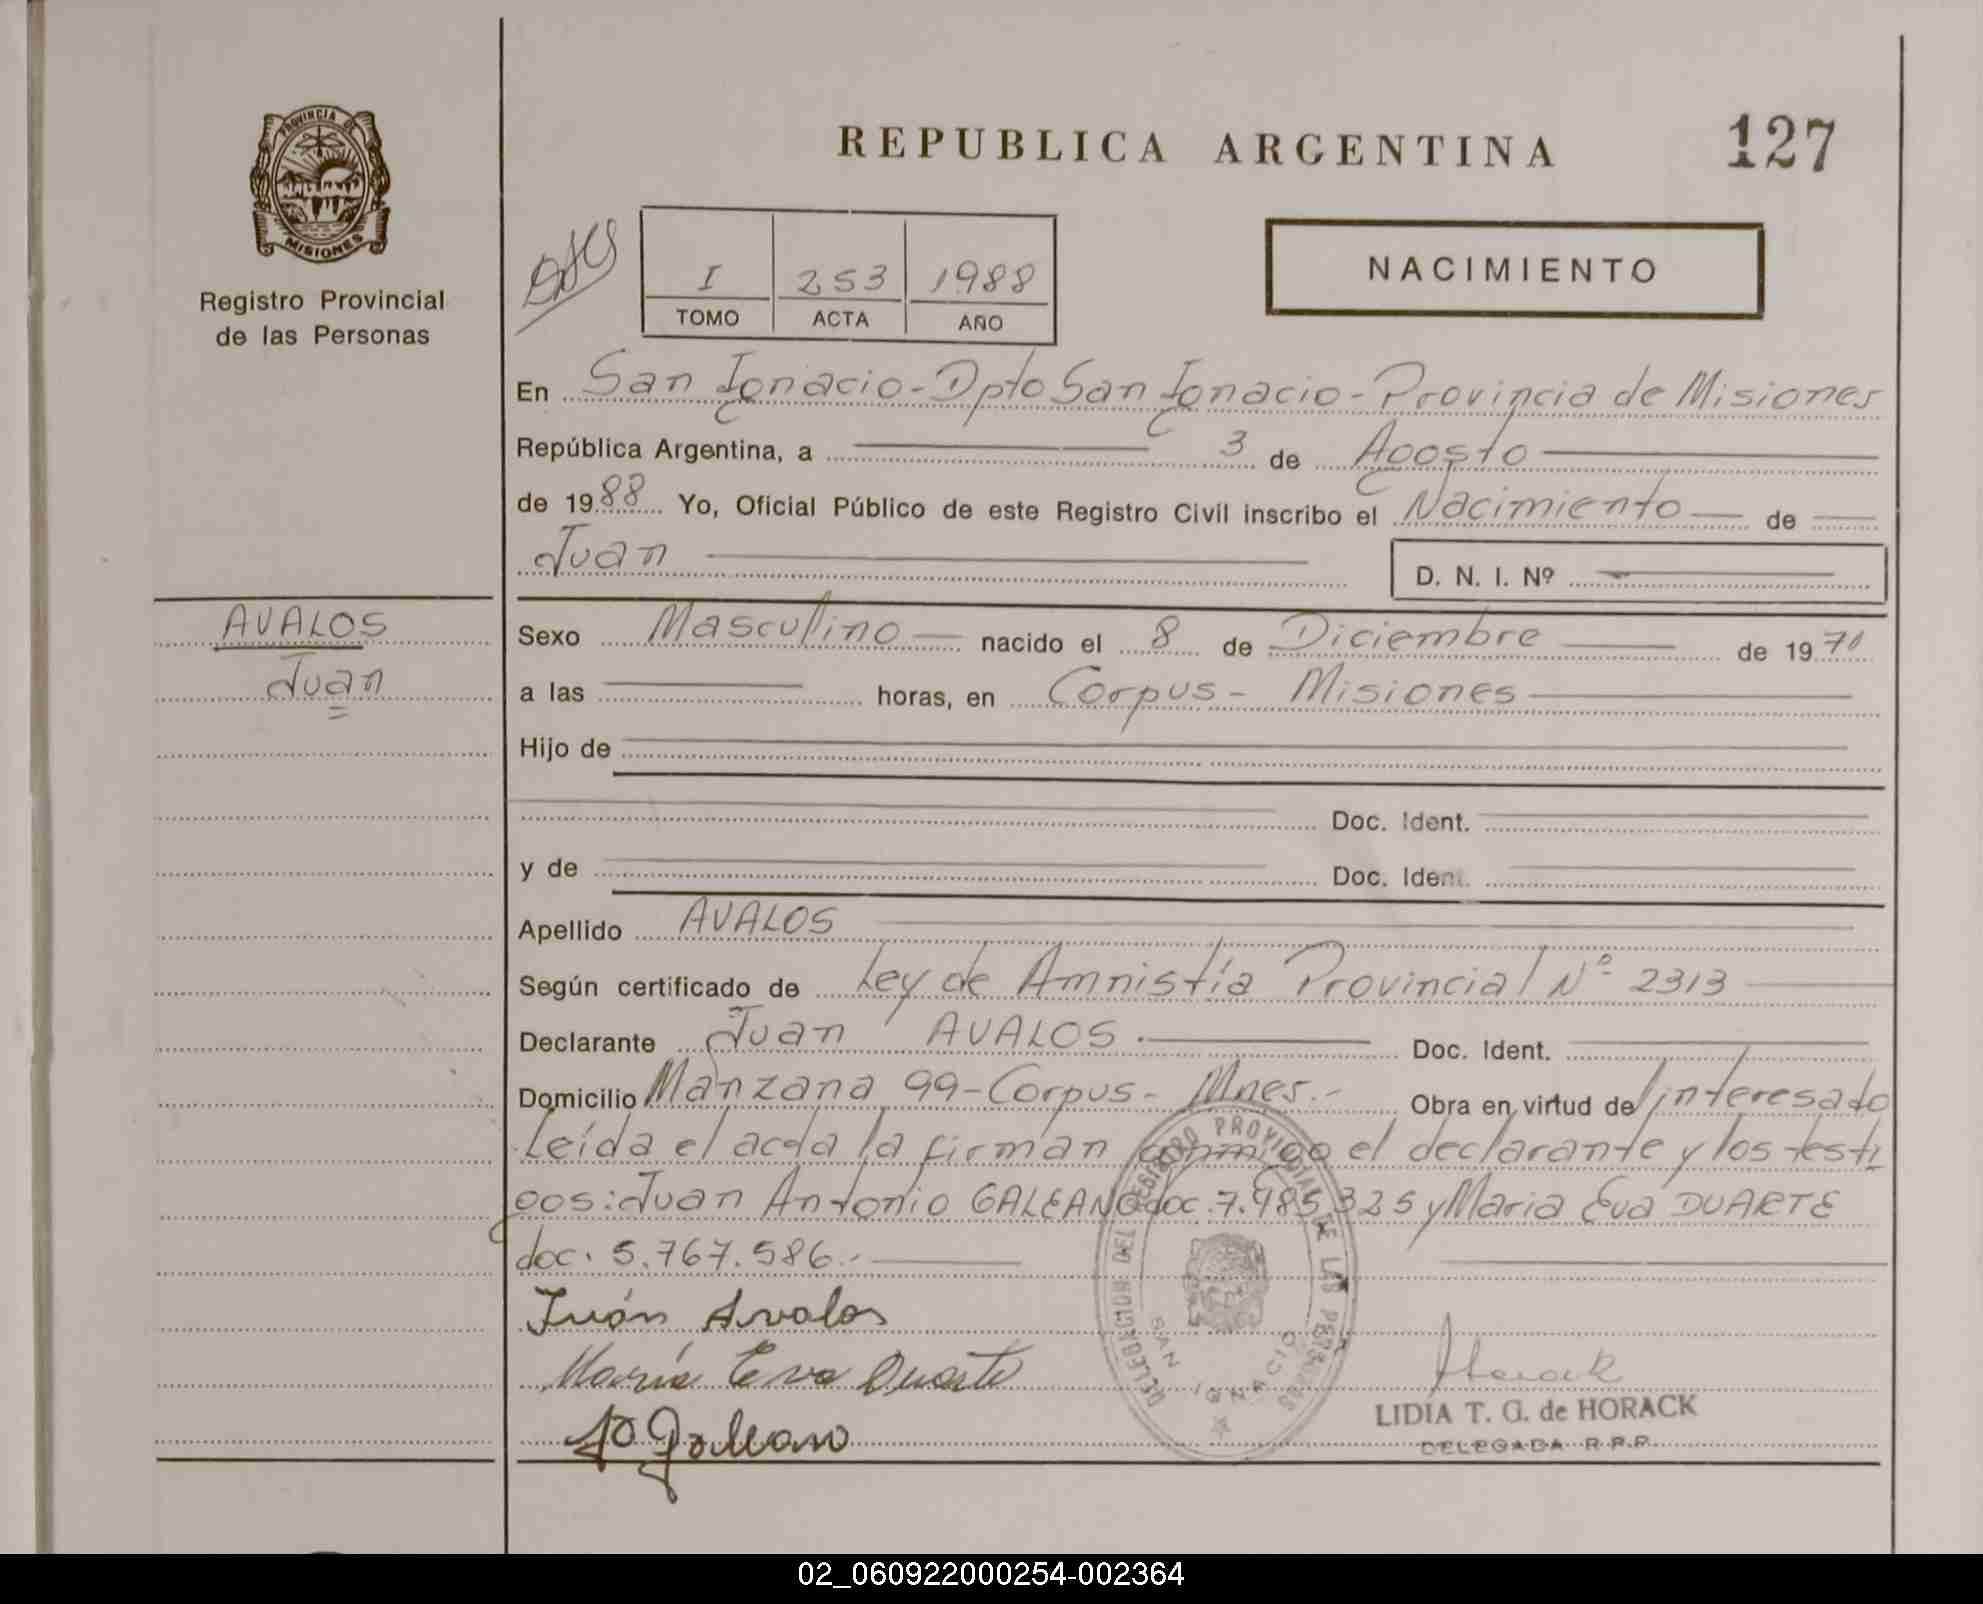 PROVINCIA DE
MISIONES
Registro Provincial
de las Personas
REPUBLICA ARGENTINA
127
I 253 1988
TOMO ACTA AÑO
NACIMIENTO
En San Ignacio - Dpto San Ignacio - Provincia de Misiones
República Argentina, a 3 de Agosto
de 1988 Yo, Oficial Público de este Registro Civil inscribo el Nacimiento de
Juan
D. N. I. Nº
AVALOS
Juan
Sexo Masculino nacido el 8 de Diciembre de 1970
a las horas, en Corpus - Misiones
Hijo de
Doc. Ident.
y de Doc. Ident.
Apellido AVALOS
Según certificado de Ley de Amnistía Provincial Nº 2313
Declarante Juan AVALOS.- Doc. Ident.
Domicilio Manzana 99 - Corpus - Mnes.- Obra en virtud de interesado
Leída el acta la firman conmigo el declarante y los testi
gos: Juan Antonio GALEANO doc. 7.485.325 y Maria Eva DUARTE
doc. 5.767.586.-
Juán Avalos
María Eva Duarte
Galeano
DELEGACION DEL REGISTRO PROVINCIAL DE LAS PERSONAS
SAN IGNACIO
Horack
LIDIA T. G. de HORACK
DELEGADA R.P.P.
02_060922000254-002364